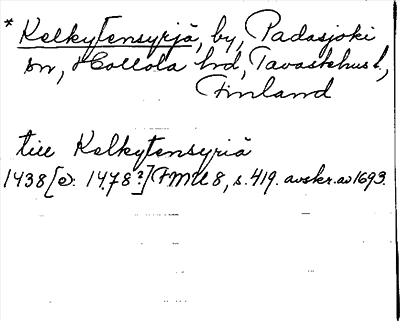 * Kelkytensyrjä, by, Padasjoki
sn, Hollola hd, Tavastehus l.,
Finland
till Kelkytensyriä
1438 [o: 1478?] FMU 8, s. 419. avskr. av 1693.